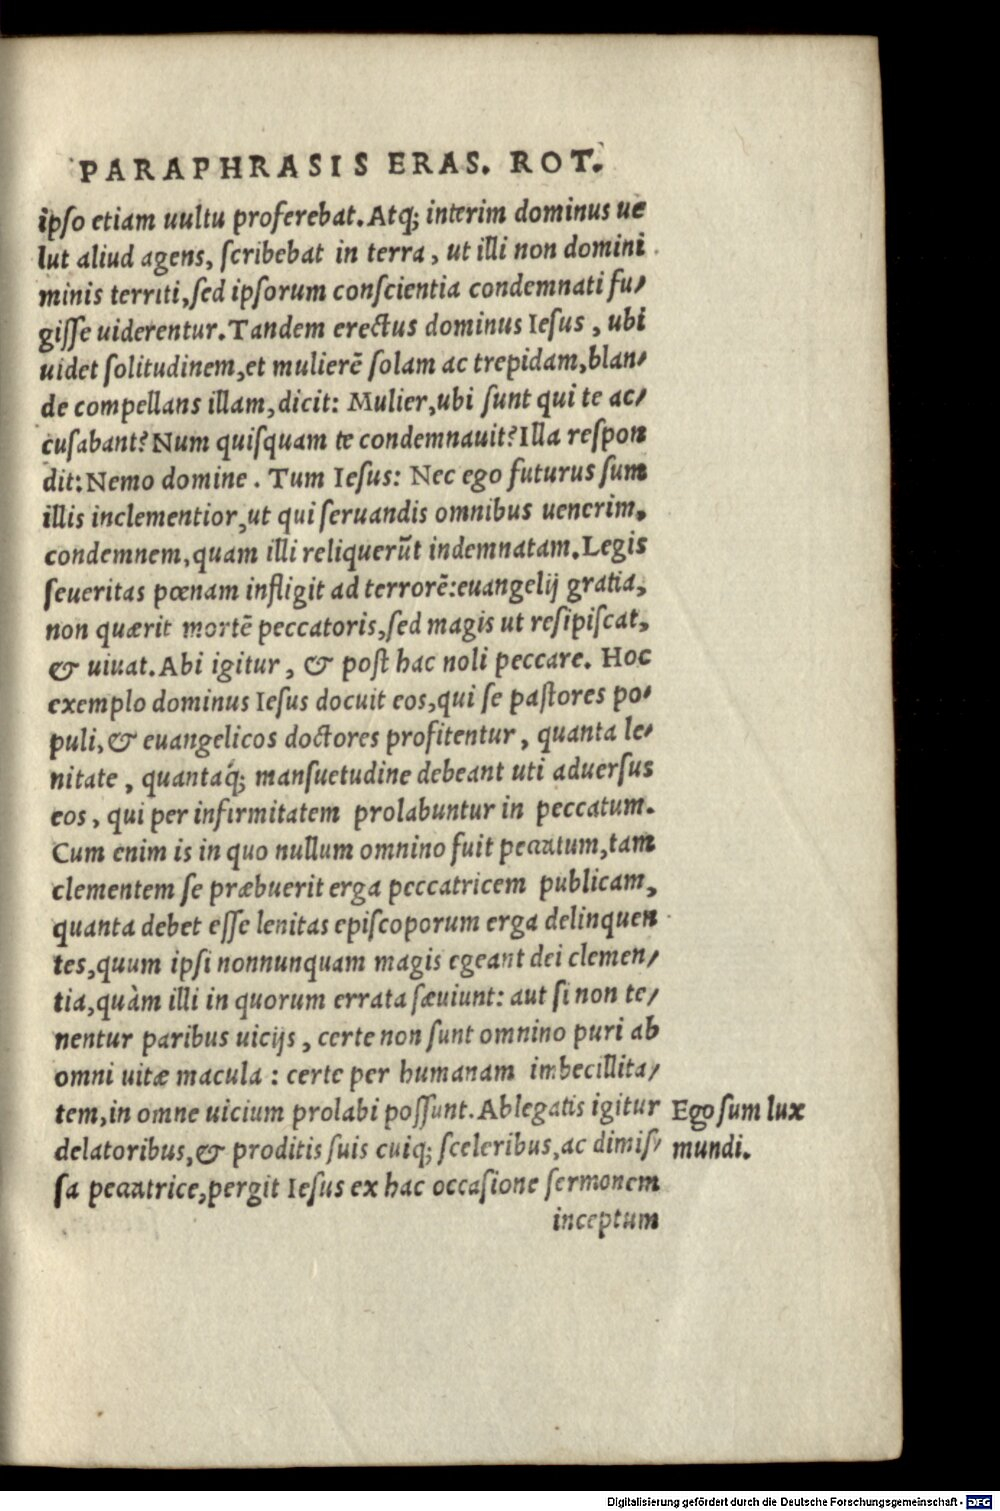 PARAPHRASIS ERAS. ROT.
ipſo etiam uultu proferebat. Atq; interim dominus ue
lut aliud agens, ſcribebat in terra, ut illi non domini
minis territi, ſed ipſorum conſcientia condemnati fu/
giſſe uiderentur. Tandem erectus dominus Ieſus, ubi
uidet ſolitudinem, et mulierē ſolam ac trepidam, blan/
de compellans illam, dicit: Mulier, ubi ſunt qui te ac/
cuſabant? Num quiſquam te condemnauit? Illa reſpon
dit: Nemo domine. Tum Ieſus: Nec ego futurus ſum
illis inclementior, ut qui ſeruandis omnibus uenerim,
condemnem, quam illi reliquerūt indemnatam. Legis
ſeueritas pœnam infligit ad terrorē: euangelij gratia,
non quærit mortē peccatoris, ſed magis ut reſipiſcat,
& uiuat. Abi igitur, & poſt hac noli peccare. Hoc
exemplo dominus Ieſus docuit eos, qui ſe paſtores po/
puli, & euangelicos doctores profitentur, quanta le/
nitate, quantaq́; manſuetudine debeant uti aduerſus
eos, qui per infirmitatem prolabuntur in peccatum.
Cum enim is in quo nullum omnino fuit peccatum, tam
clementem ſe præbuerit erga peccatricem publicam,
quanta debet eſſe lenitas epiſcoporum erga delinquen
tes, quum ipſi nonnunquam magis egeant dei clemen/
tia, quàm illi in quorum errata ſæuiunt: aut ſi non te/
nentur paribus uicijs, certe non ſunt omnino puri ab
omni uitæ macula: certe per humanam imbecillita/
tem, in omne uicium prolabi poſſunt. Ablegatis igitur
delatoribus, & proditis ſuis cuiq; ſceleribus, ac dimiſ/
ſa peccatrice, pergit Ieſus ex hac occaſione ſermonem
inceptum
Ego ſum lux
mundi.
Digitalisierung gefördert durch die Deutsche Forschungsgemeinschaft - DFG